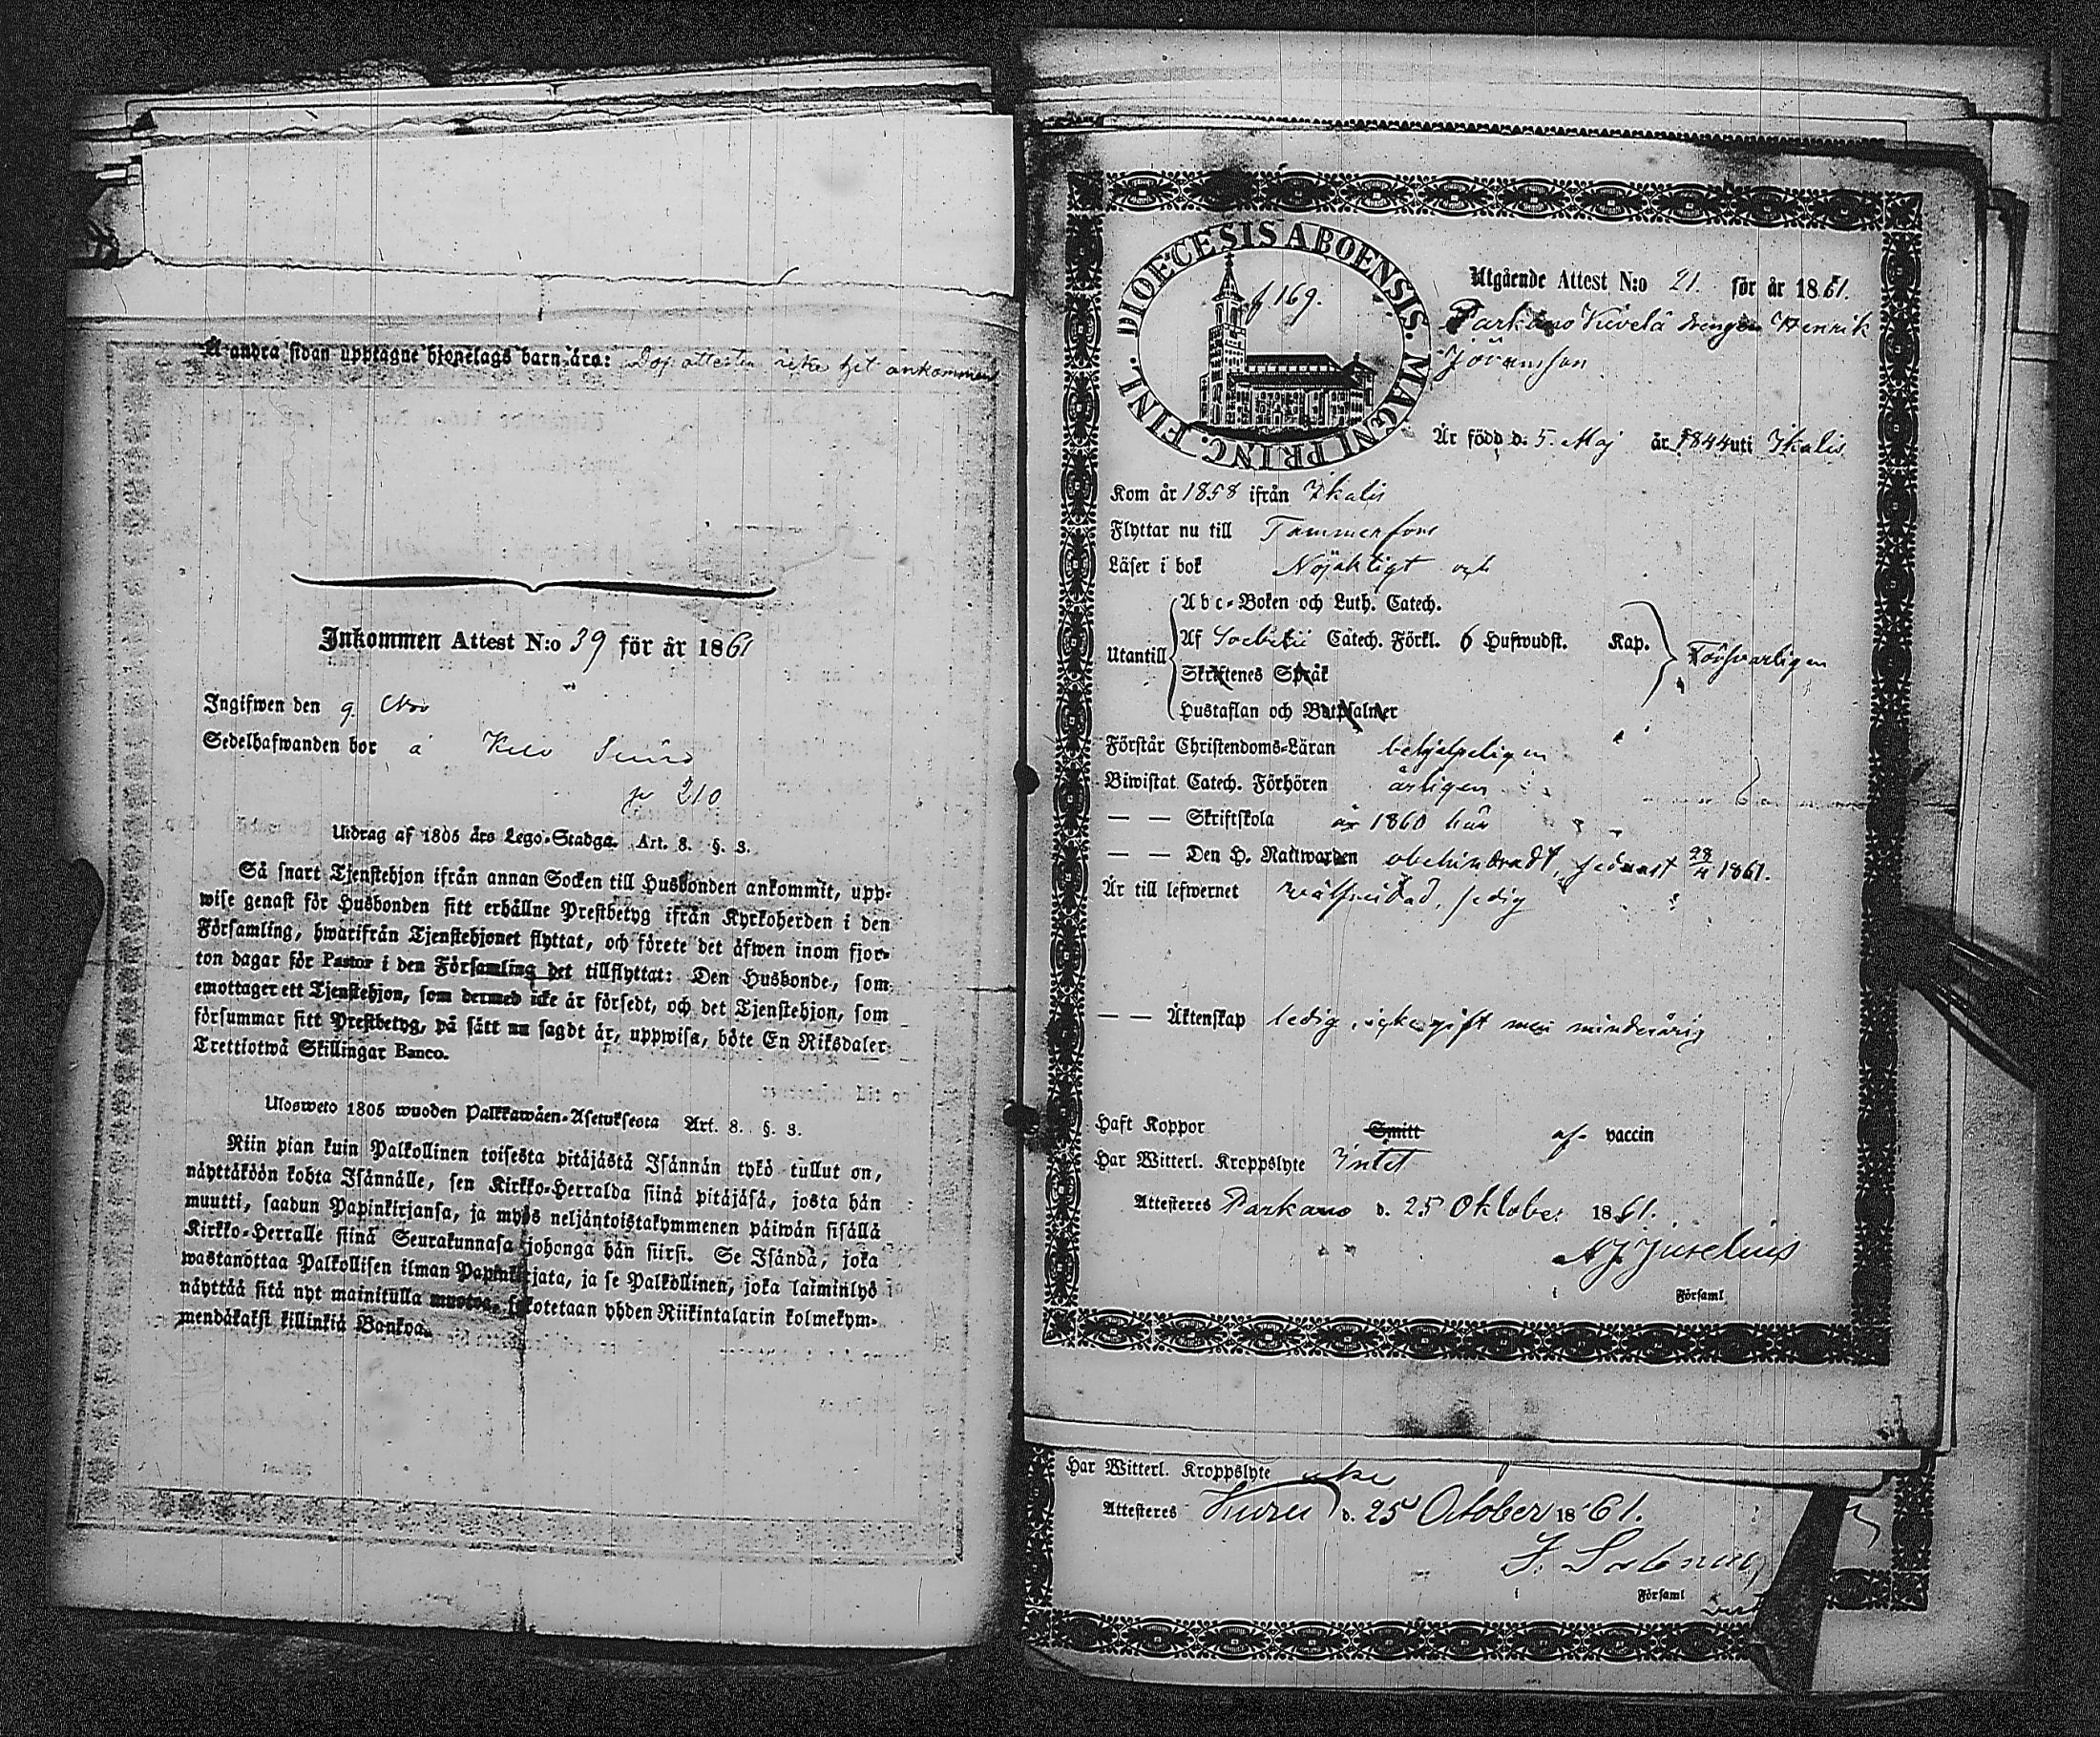 Å andra sidan upptagne hjonelags barn äro: Dop attesten icke hit ankommen
Inkommen Attest N:o 39 för år 1861
Ingifwen den 9. Nov
Sedelhafwanden bor å
p 210
Utdrag af 1805 års Lego-Stadga. Art. 8. §. 3.
Så snart Tjenstehjon ifrån annan Socken till Husbonden ankommit, upp-
wise genast för Husbonden sitt erhållne Prestbetyg ifrån Kyrkoherden i den
Församling, hwarifrån Tjenstehjonet flyttat, och förete det äfwen inom fjor-
ton dagar för Pastor i den Församling det tillflyttat: Den Husbonde, som
emottager ett Tjenstehjon, som dermed icke är försedt, och det Tjenstehjon, som
försummar sitt Prestbetyg, på sätt nu sagdt är, uppwisa, böte En Riksdaler
Trettiotwå Skillingar Banco.
Ulosweto 1805 wuoden Palkkawäen-Asetuksesta Art. 8. §. 3.
Niin pian kuin Palkollinen toisesta pitäjästä Isännän tykö tullut on,
näyttäköön kohta Isännälle, sen Kirkko-Herralda siinä pitäjäsä, josta hän
muutti, saadun Papinkirjansa, ja myös neljäntoistakymmenen päiwän sisällä
Kirkko-Herralle siinä Seurakunnasa johonga hän siirsi. Se Isändä, joka
wastanottaa Palkollisen ilman Papinkirjata, ja se Palkollinen, joka laiminlyö
näyttää sitä nyt mainitulla muotoa, sakotetaan yhden Riikintalarin kolmekym-
mendäkaksi killinkiä Bankoa.
DIOECESIS ABOENSIS. MAGNI PRINC. FINL.
f 169.
Utgående Attest N:o 21. för år 1861.
Parkano Kivelä drengen Henrik
Jöransson
Är född d. 5. Maj år 1844 uti Ikalis
Kom år 1858 ifrån Ikalis
Flyttar nu till Tammerfors
Läser i bok Nöjaktigt och
Utantill
Abc-Boken och Luth. Catech.
Af Svebelii Catech. Förkl. 6 Hufwudst. Kap.
Försvarligen
Skriftenes Språk
Hustaflan och Botpsalmer
Förstår Christendoms-Läran behjelpeligen
Biwistat Catech. Förhören årligen
— — Skriftskola år 1860 här
— — Den H. Nattwarden obehindradt, sednast 1861.
Är till lefwernet wälfrejdad, ledig
— — Äktenskap ledig, icke gift men minderårig
Haft Koppor Smitt af vaccin
Har Witterl. Kroppslyte Intet
Attesteres Parkano d. 25 Oktober 1861.
A J Juselius
Församl
Har Witterl. Kroppslyte icke
Attesteres Kuru d. 25 October 1861.
Församl